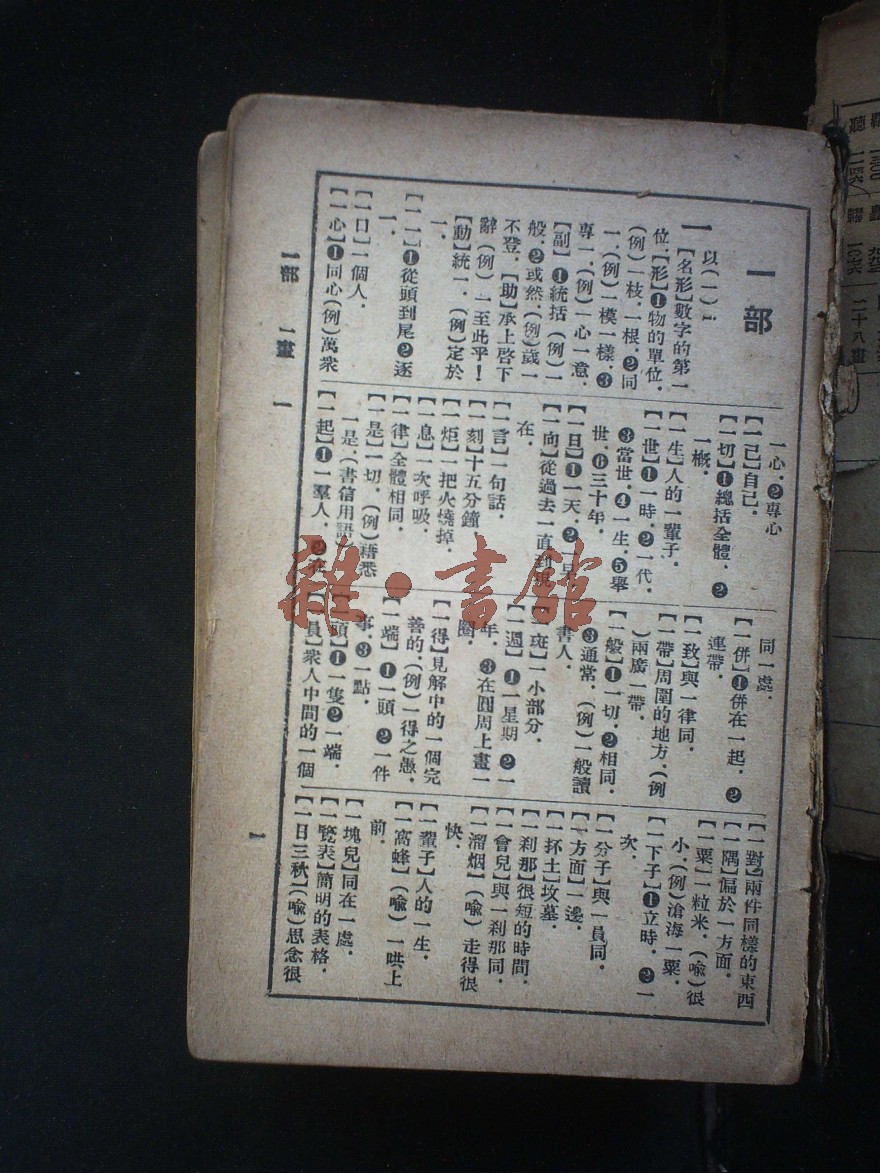 一部
一 【名形】數字的第一
位.【形】❶物的單位.
(例)一枝.一根.❷同
一.(例)一模一樣.❸
專一.(例)一心一意.
【副】❶統括(例)一
般.❷或然.(例)歲一
不登.【助】承上啓下
辭(例)一至此乎!
【動】統一.(例)定於
一.
【一一】❶從頭到尾❷逐
一.
【一口】一個人.
【一心】❶同心(例)萬衆
一心.❷專心
【一己】自己.
【一切】❶總括全體.❷
一概.
【一生】人的一輩子.
【一世】❶一時.❷一代.
❸當世.❹一生.❺舉
世.❻三十年.
【一旦】❶一天.❷一旦.
【一向】從過去一直到
在.
【一言】一句話.
【一刻】十五分鐘
【一炬】一把火燒掉.
【一息】一次呼吸.
【一律】全體相同.
【一是】一切.(例)藉悉
一是.(書信用語
【一起】❶一羣人.❷在
同一處.
【一併】❶併在一起.❷
連帶.
【一致】與一律同.
【一帶】周圍的地方.(例
)兩廣一帶.
【一般】❶一切.❷相同.
❸通常.(例)一般讀
書人.
【一斑】一小部分.
【一週】❶一星期❷一
年.❸在圓周上畫一
圈.
【一得】見解中的一個完
善的.(例)一得之愚.
【一端】❶一頭❷一件
事.❸一點.
【一頭】❶一隻❷一端.
【一員】衆人中間的一個
【一對】兩件同樣的東西
【一隅】偏於一方面.
【一粟】一粒米.(喩)很
小.(例)滄海一粟.
【一下子】❶立時.❷一
次.
【一分子】與一員同.
【一方面】一邊.
【一抔土】坟墓.
【一刹那】很短的時間.
【一會兒】與一刹那同.
【一溜烟】(喩)走得很
快.
【一輩子】人的一生.
【一窩蜂】(喩)一哄上
前.
【一塊兒】同在一處.
【一覽表】簡明的表格.
【一日三秋】(喩)思念很
一部 一畫 一
一
二十八畫
雜·書館